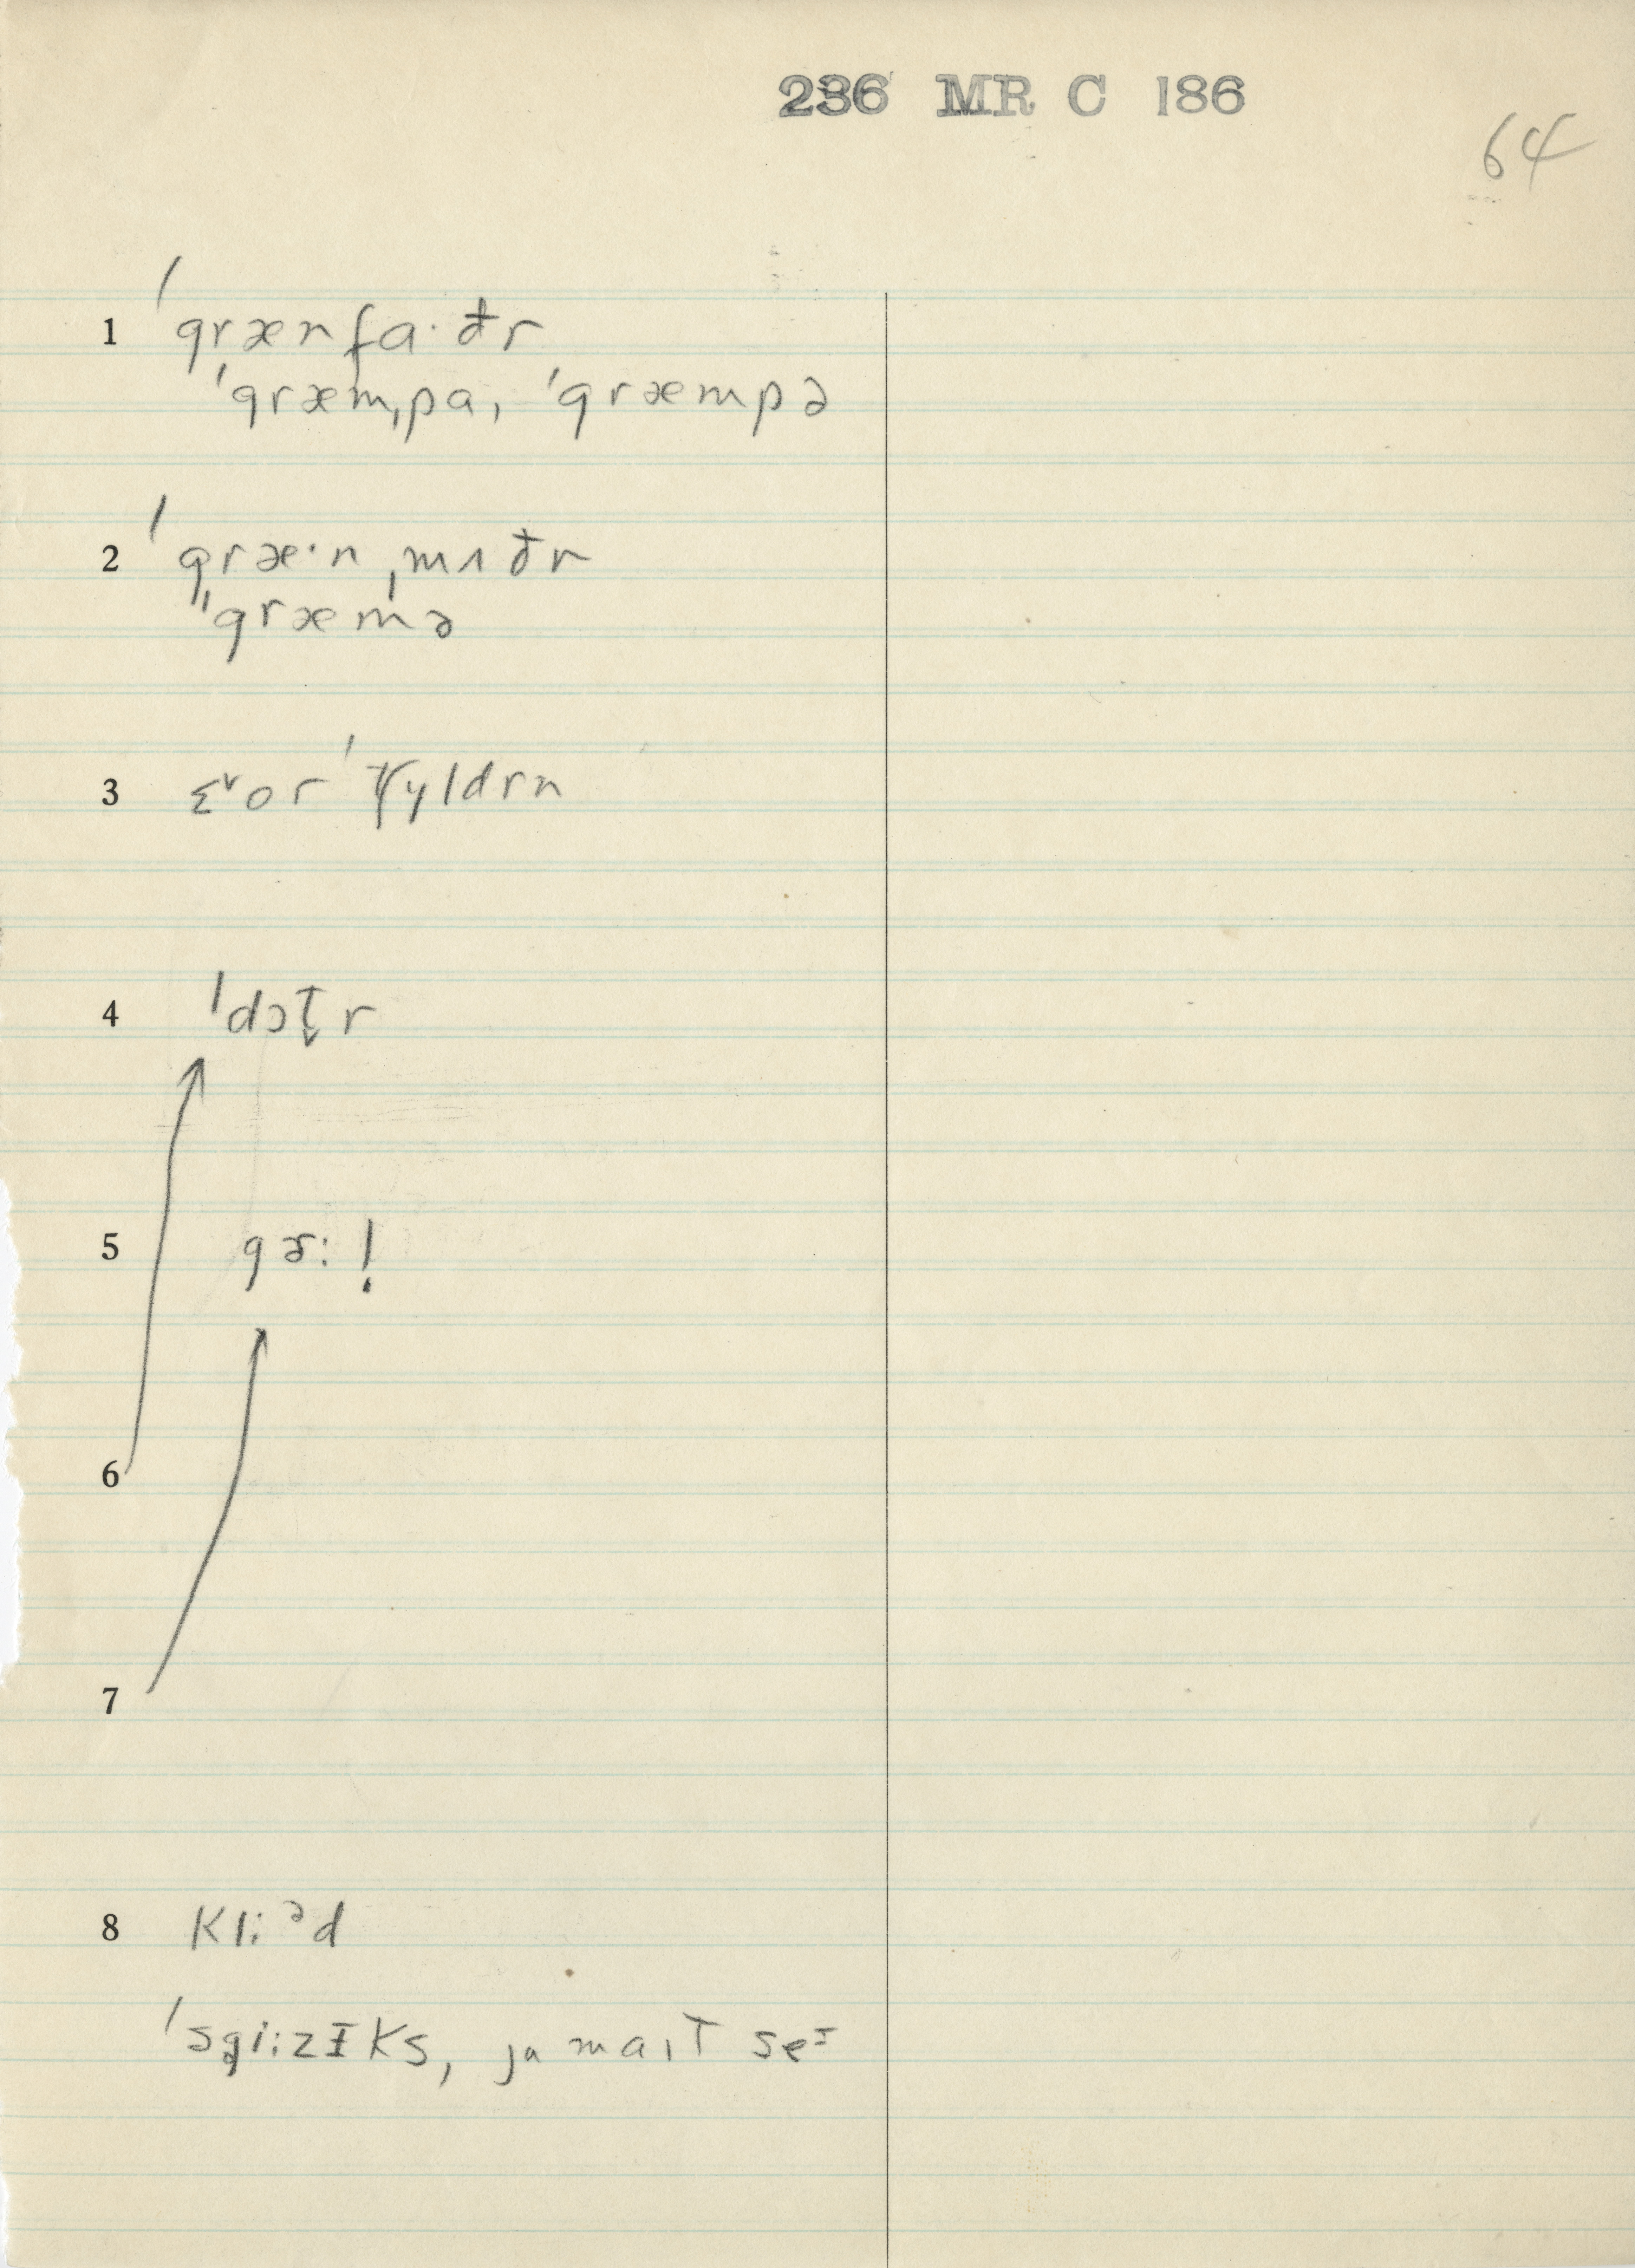 236 MR C 186
64
1 ˈgrænfa·ðr
ˈgræmˌpa, ˈgræmpə
2 ˈgræ·nˌmʌðr
"græmə
3 ɛ˅or ˈtʃyldrn
4 ˈdɔt̬r
5 gɚ: !
6
7
8 kli:ᵊd
ˈsgi:zɪks, jʊ maɪt seᶦ